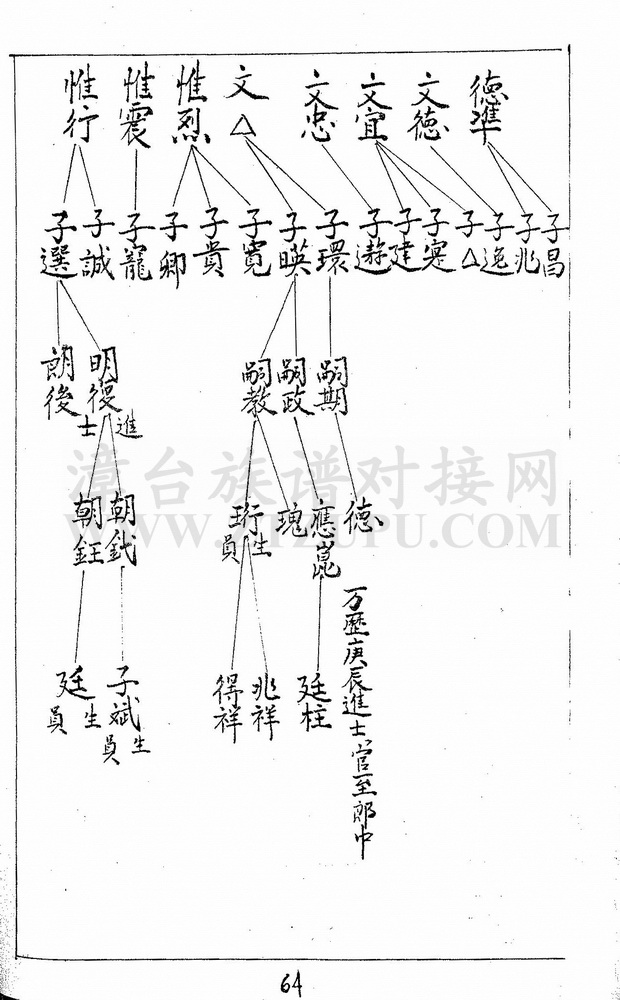 德準
文德
文宜
文忠
文△
惟烈
惟震
惟行
子昌
子兆
子逸
子△
子寔
子建
子遊
子環
子暎
子寬
子貴
子卿
子寵
子誠
子選
嗣期
嗣政
嗣教
明復 進士
朗後
德 万歷庚辰進士官至郎中
應崑
瑰
珩 生員
朝代
朝鈺
廷柱
兆祥
得祥
子斌 生員
廷 生員
漳台族谱对接网
64